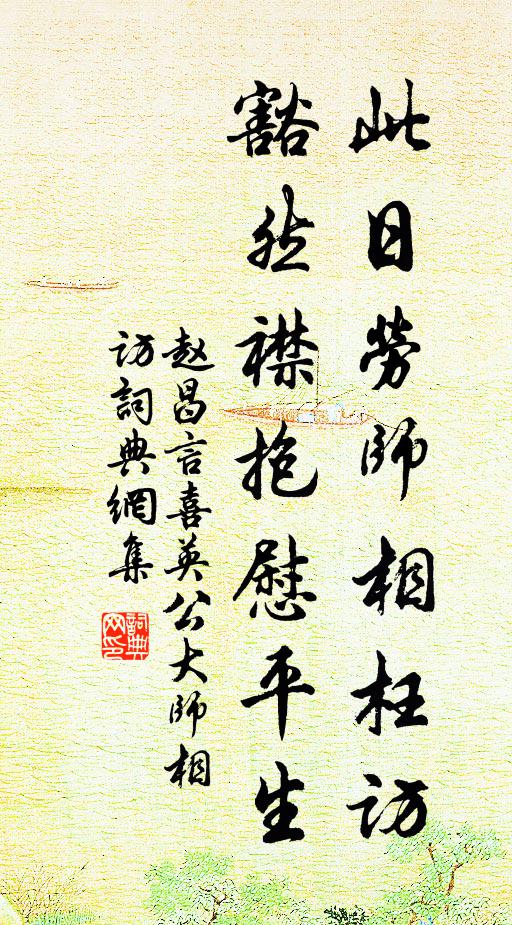 此日勞師相枉訪
豁然襟抱慰平生
赵昌言喜英公大师相
访詞典網集
詞典
网印